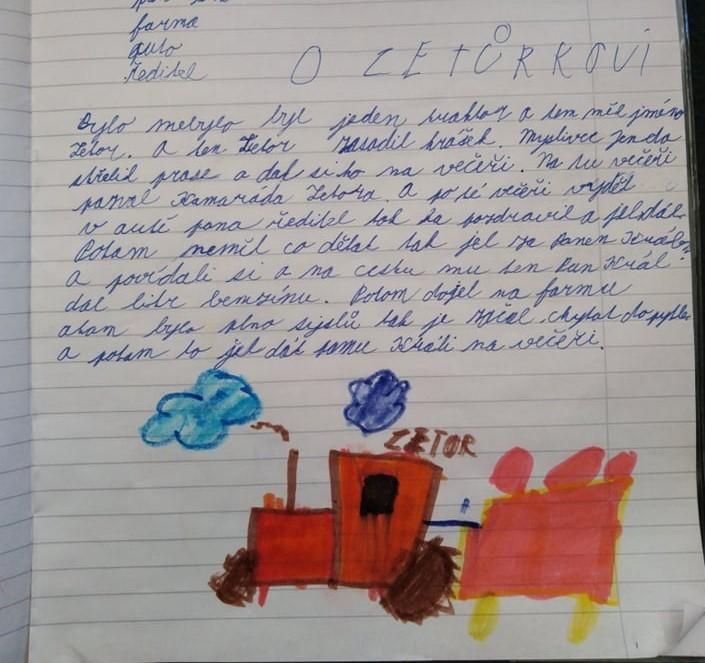 farma
auto
ředitel
O ZETŮRKOVI
Bylo nebylo byl jeden traktor a ten měl jméno
Zetor. A ten Zetor zasadil hrášek. Myslivec Jenda
střelil prase a dal si ho na večeři. Na tu večeři
pozval kamaráda Zetora. A po té večeři vyděl
v autě pana ředitel tak ho pozdravil a jel dál.
Potom neměl co dělat tak jel za Panem Králem
A povídali si a na cestu mu ten Pan Král
dal litr benzínu. Potom dojel na farmu
a tam bylo plno sislů tak je začal chytat do pytle
a potom to jel dát panu Králi na večeři.
ZETOR